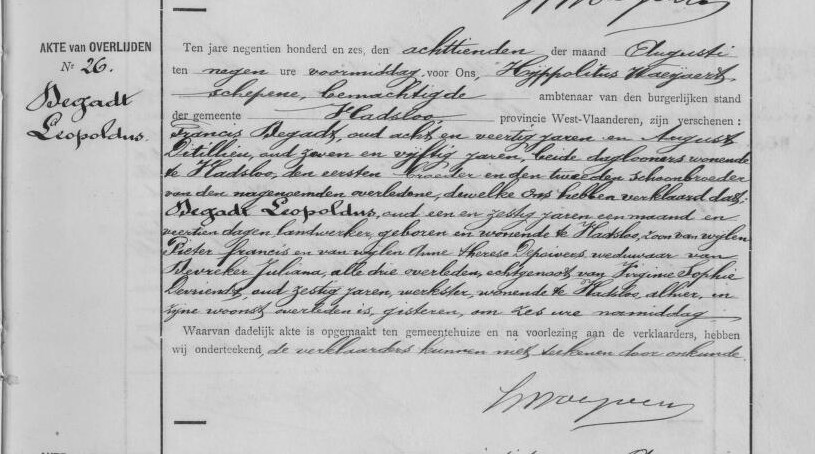 AKTE van OVERLIJDEN
Nr 26.
Begadt
Leopoldus.
Ten jare negentien honderd en zes, den achttienden der maand Augusti
ten negen ure voormiddag, voor Ons, Hyppolitus Waeyaert
schepene, bemachtigde ambtenaar van den burgerlijken stand
der gemeente Hadsloo, provincie West-Vlaanderen, zijn verschenen :
Francis Begadt, oud acht en veertig jaren en August
Ditillieu, oud zeven en vijftig jaren, beide daglooners wonende
te Hadsloo, den eersten broeder en den tweeden schoonbroeder
van den nagenoemden overledene, dewelke Ons hebben verklaard dat:
Begadt Leopoldus, oud een en zestig jaren een maand en
veertien dagen landwerker, geboren en wonende te Hadsloo, zoon van wylen
Pieter francis en van wylen Anne Therese weduwaar van
Devreker Juliana, alle drie overleden, echtgenoot van Virginie Sophie
Devriendt, oud zestig jaren, werkster, wonende te Hadsloo, alhier, in
zijne woonst overleden is, gisteren, om zes ure namiddag
Waarvan dadelijk akte is opgemaakt ten gemeentehuize en na voorlezing aan de verklaarders, hebben
wij onderteekend, de verklaarders kunnen niet teekenen door onkunde.
AKTE